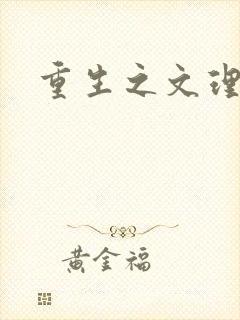 重生之文理
黄金福